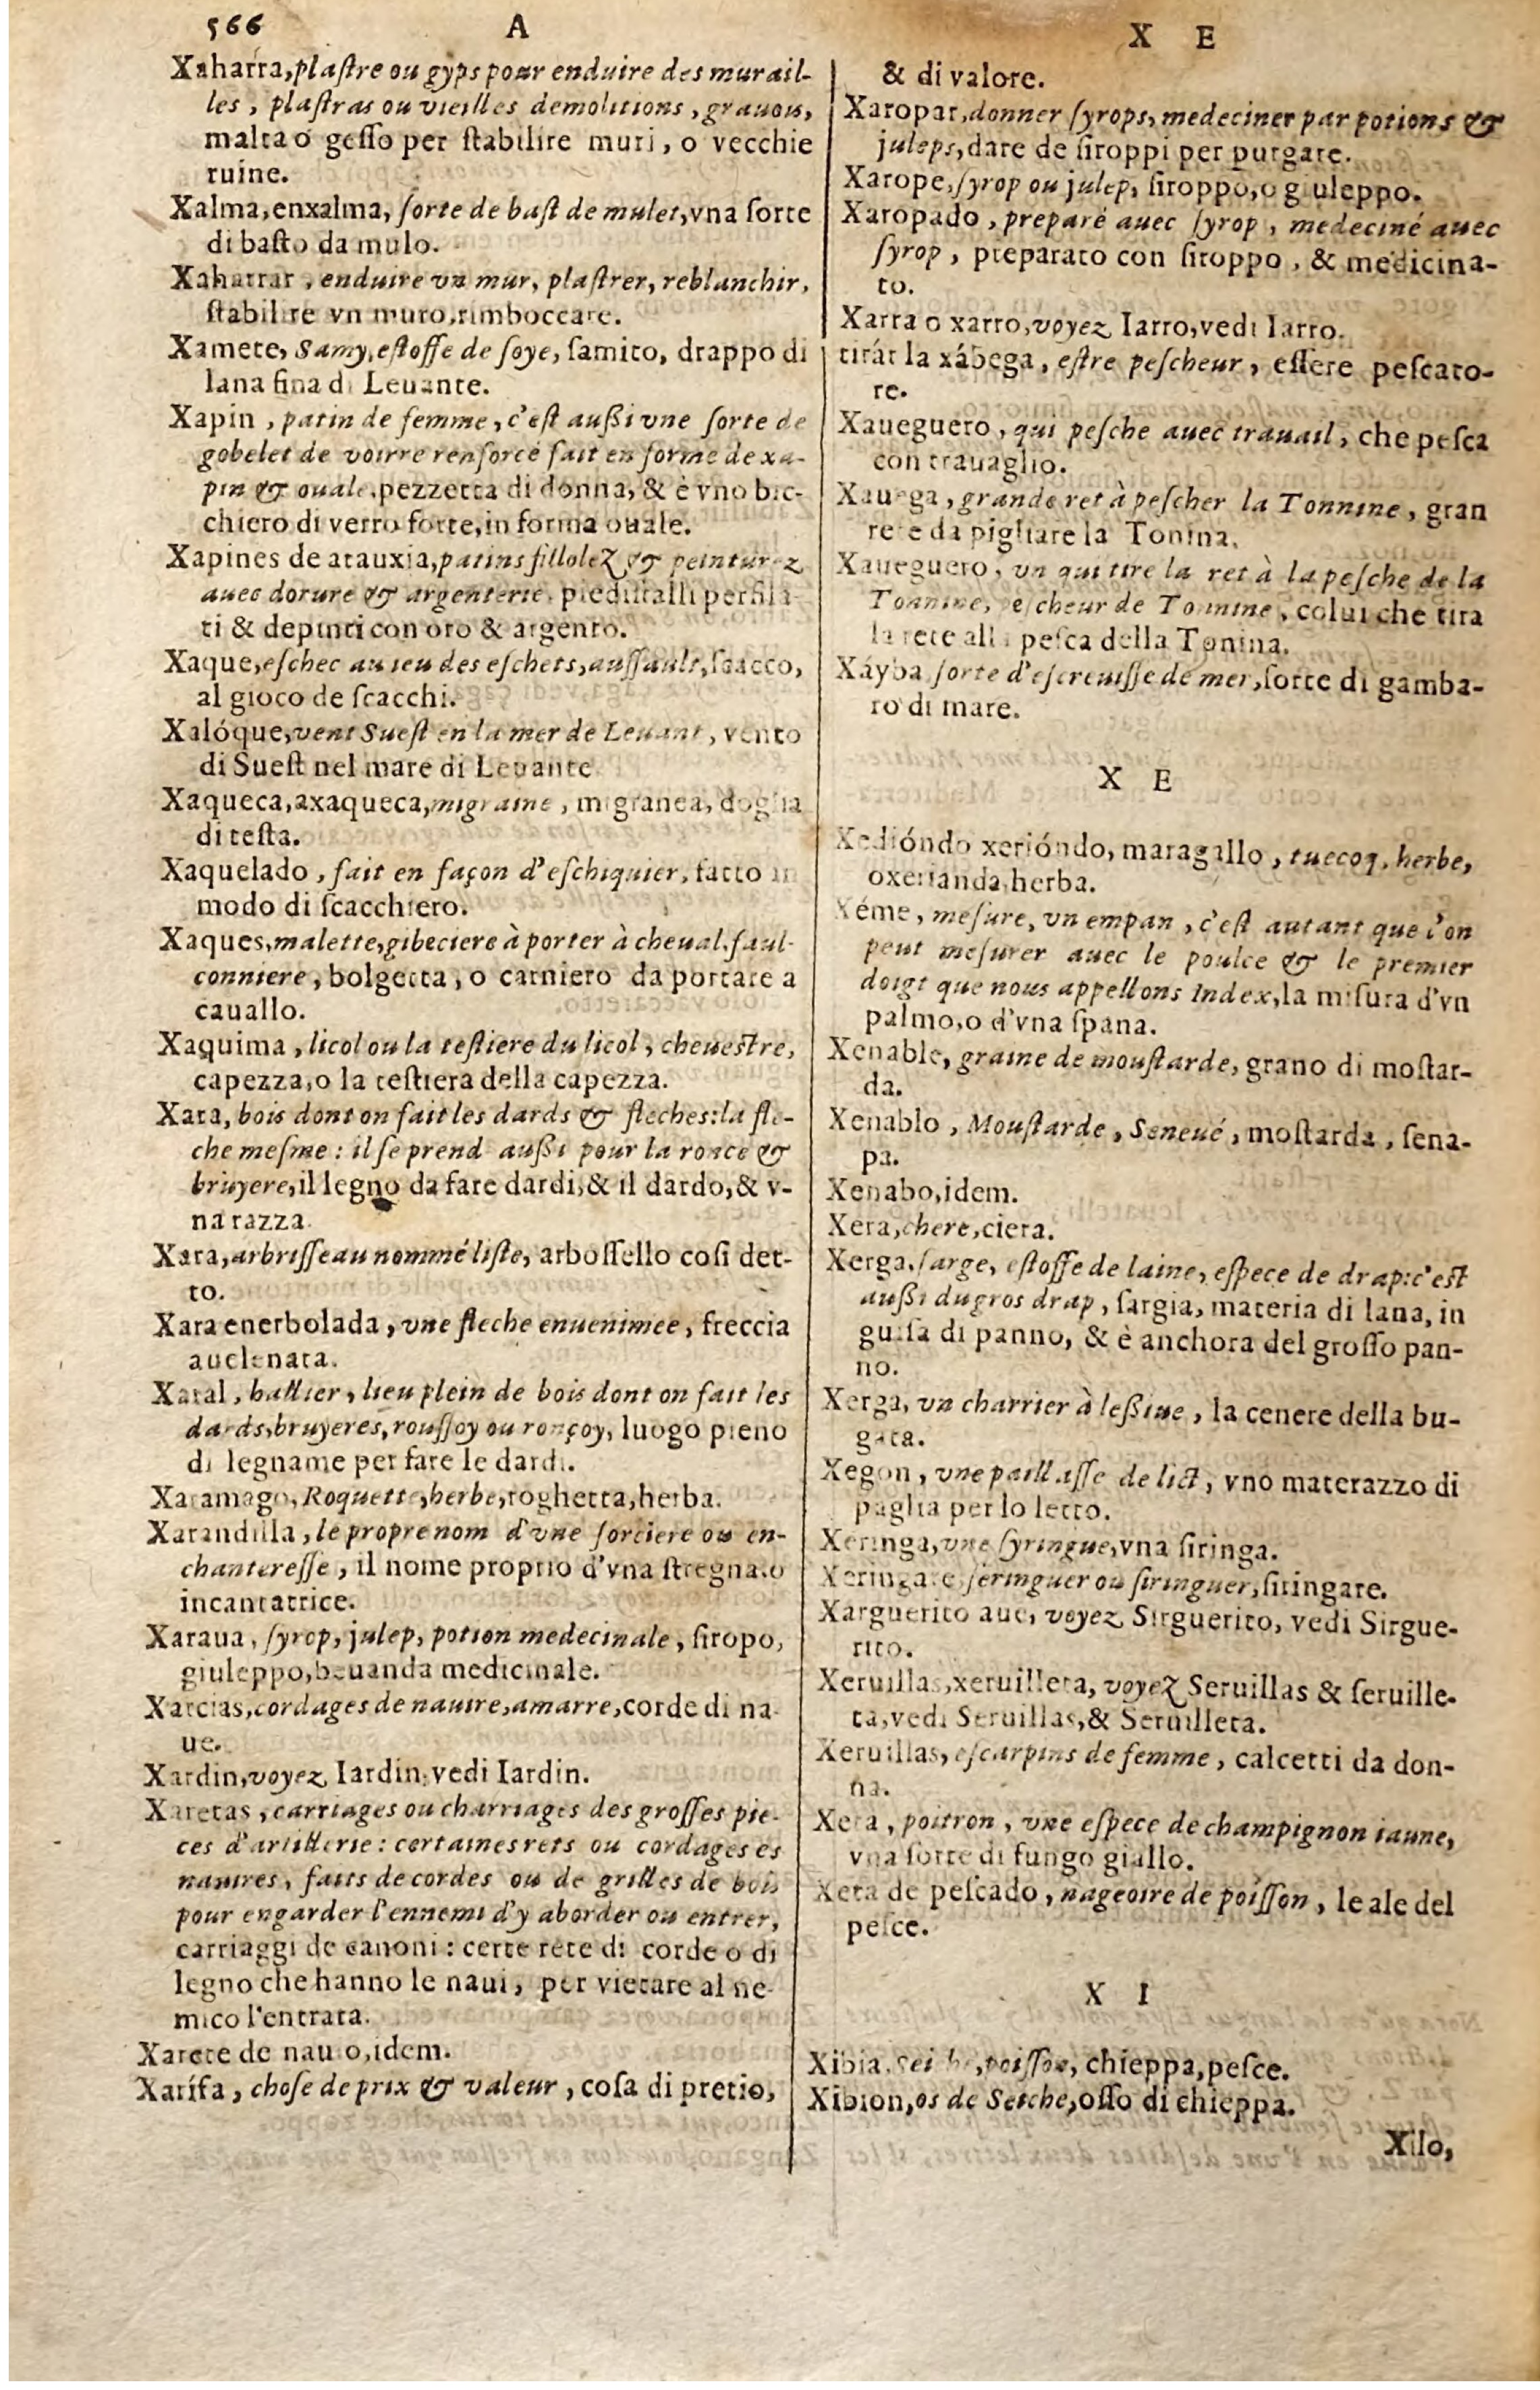 566 A
Xaharra, plaſtre ou gyps pour enduire des murail-
les, plaſtras ou vieilles demolitions, grauois,
malta o geſſo per ſtabilire muri, o vecchie
ruine.
Xalma, enxalma, ſorte de baſt de mulet, vna ſorte
di baſto da mulo.
Xaharrar, enduire vn mur, plaſtrer, reblanchir,
ſtabilire vn muro, rimboccare.
Xamete, Samy, eſtoffe de ſoye, ſamito, drappo di
lana fina di Leuante.
Xapin, patin de femme, c'eſt außi vne ſorte de
gobelet de voirre renforcé fait en forme de xa-
pin & ouale, pezzetta di donna, & è vno bic-
chiero di verro forte, in forma ouale.
Xapines de atauxia, patins fillolez & peinturez
auec dorure & argenterie, piedistalli perfila-
ti & depinti con oro & argento.
Xaque, eſchec au ieu des eſchets, auſſault, ſcacco,
al gioco de ſcacchi.
Xalóque, vent Sueſt en la mer de Leuant, vento
di Sueſt nel mare di Leuante
Xaqueca, axaqueca, migraine, migranea, doglia
di teſta.
Xaquelado, fait en façon d'eſchiquier, fatto in
modo di ſcacchiero.
Xaques, malette, gibeciere à porter à cheual, faul-
conniere, bolgetta, o carniero da portare a
cauallo.
Xaquima, licol ou la teſtiere du licol, cheueſtre,
capezza, o la teſtiera della capezza.
Xara, bois dont on fait les dards & fleches: la fle-
che meſme: il ſe prend außi pour la ronce &
briuyere, il legno da fare dardi, & il dardo, & v-
na razza.
Xara, arbriſſeau nommé liſte, arboſſello coſi det-
to.
Xara enerbolada, vne fleche enuenimee, freccia
auelenata.
Xaral, hallier, lieu plein de bois dont on fait les
dards, bruyeres, rouſſoy ou ronçoy, luogo pieno
di legname per fare le dardi.
Xaramago, Roquette, herbe, roghetta, herba.
Xarandilla, le propre nom d'vne ſorciere ou en-
chantereſſe, il nome proprio d'vna ſtregna, o
incantatrice.
Xaraua, ſyrop, julep, potion medecinale, ſiropo,
giuleppo, beuanda medicinale.
Xarcias, cordages de nauire, amarre, corde di na-
ue.
Xardin, voyez Iardin, vedi Iardin.
Xaretas, carriages ou charriages des groſſes pie-
ces d'artillerie: certaines rets ou cordages és
nauires, faits de cordes ou de grilles de bois
pour engarder l'ennemi d'y aborder ou entrer,
carriaggi de canoni: certe rete di corde o di
legno che hanno le naui, per vietare al ne-
mico l'entrata.
Xarete de nauio, idem.
Xarífa, choſe de prix & valeur, coſa di pretio,
X E
& di valore.
Xaropar, donner ſyrops, medeciner par potions &
juleps, dare de ſiroppi per purgare.
Xarope, ſyrop ou julep, ſiroppo, o giuleppo.
Xaropado, preparé auec ſyrop, medeciné auec
ſyrop, preparato con ſiroppo, & medicina-
to.
Xarra o xarro, voyez Iarro, vedi Iarro.
tirár la xábega, eſtre peſcheur, eſſere peſcato-
re.
Xaueguero, qui peſche auec trauail, che peſca
con trauaglio.
Xauega, grande ret à peſcher la Tonnine, gran
rete da pigliare la Tonina.
Xaueguero, vn qui tire la ret à la peſche de la
Tonnine, peſcheur de Tonnine, colui che tira
la rete alla peſca della Tonina.
Xáyba ſorte d'eſcreuiſſe de mer, ſorte di gamba-
ro di mare.
X E
Xedióndo xerióndo, maragallo, tuecoq, herbe,
oxerianda, herba.
Xéme, meſure, vn empan, c'eſt autant que l'on
peut meſurer auec le poulce & le premier
doigt que nous appellons Index, la miſura d'vn
palmo, o d'vna ſpana.
Xenable, graine de mouſtarde, grano di moſtar-
da.
Xenablo, Mouſtarde, Seneué, moſtarda, ſena-
pa.
Xenabo, idem.
Xera, chere, ciera.
Xerga, ſarge, eſtoffe de laine, eſpece de drap: c'eſt
außi du gros drap, ſargia, materia di lana, in
guiſa di panno, & è anchora del groſſo pan-
no.
Xerga, vn charrier à leßiue, la cenere della bu-
gata.
Xegon, vne paillaſſe de lict, vno materazzo di
paglia per lo letto.
Xeringa, vne ſyringue, vna ſiringa.
Xeringare, ſeringuer ou ſiringuer, ſiringare.
Xarguerito aue, voyez Sirguerito, vedi Sirgue-
rito.
Xeruillas, xeruilleta, voyez Seruillas & ſeruille-
ta, vedi Seruillas, & Seruilleta.
Xeruillas, eſcarpins de femme, calcetti da don-
na.
Xeta, poitron, vne eſpece de champignon iaune,
vna ſorte di fungo giallo.
Xeta de peſcado, nageoire de poiſſon, le ale del
peſce.
X I
Xibia, Seiche, poiſſon, chieppa, peſce.
Xibion, os de Seiche, oſſo di chieppa.
Xilo,